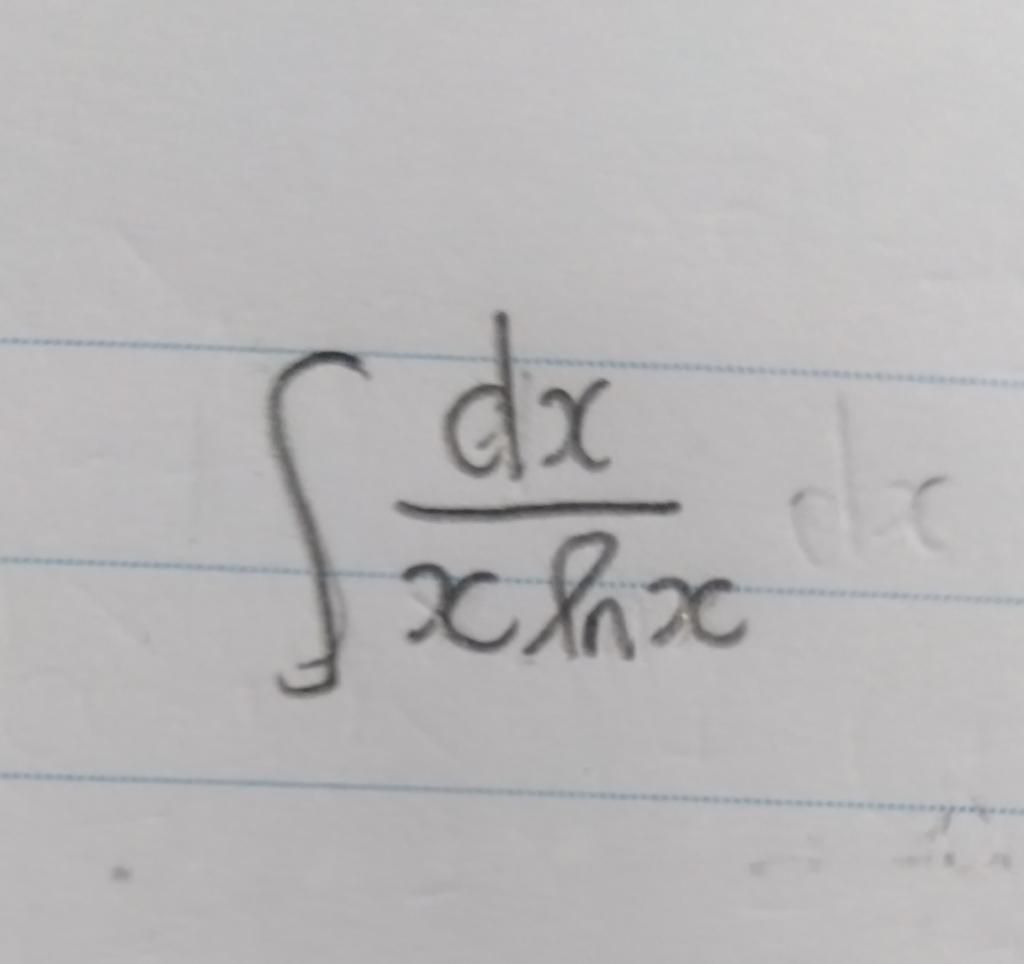 ∫ dx / (x ln x)